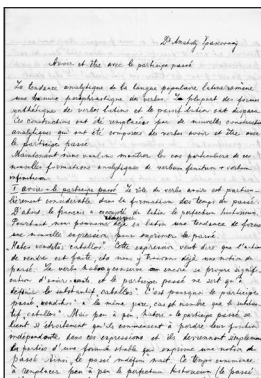 Dr Anatolij
Avoir et être avec le participe passé
La tendence analytique de la langue populaire latine ramène
une tournure périphrastique des verbes. La plupart des formes
synthétiques de verbes latins et le passif latin ont disparu.
Ces constructions ont été remplacées par de nouvelles constructions
analytiques qui ont été composées de verbes avoir et être avec
le participe passé.
Maintenant nous montrer les cas particuliers de ces
nouvelles formations analytiques de verbum finitum + verbum
infinitum.
I avoir + le participe passé. Le rôle du verbe avoir est particu-
lièrement considérable dans la formation des temps du passé.
D'abord le français a du latin le perfectum historicum.
Pourtant nous pouvons déjà en latin une tendence de former
une nouvelle expression pour exprimer le passé.
"habeo venditos caballos". Cette expression veut dire que l'action
de vendre est faite, et nous y trouvons déjà une notion du
passé. Le verbe habeo conserve encore sa propre signifi-
cation d'avoir et le participe passé ne sert qu'à
définir le substantif "caballos". C'est pourquoi le participe
passé "venditos" a le même genre, cas et nombre que le substan-
tif "caballos". Mais peu à peu, habere + le participe passé se
lient si étroitement qu'ils commencent à perdre leur fonction
indépendante dans ces expressions et ils deviennent simplement
des parties d'une forme verbale qui exprime une notion du
passé. Ainsi, le passé indéfini Ce temps commence
à remplacer peu à peu le perfectum historicum (le passé